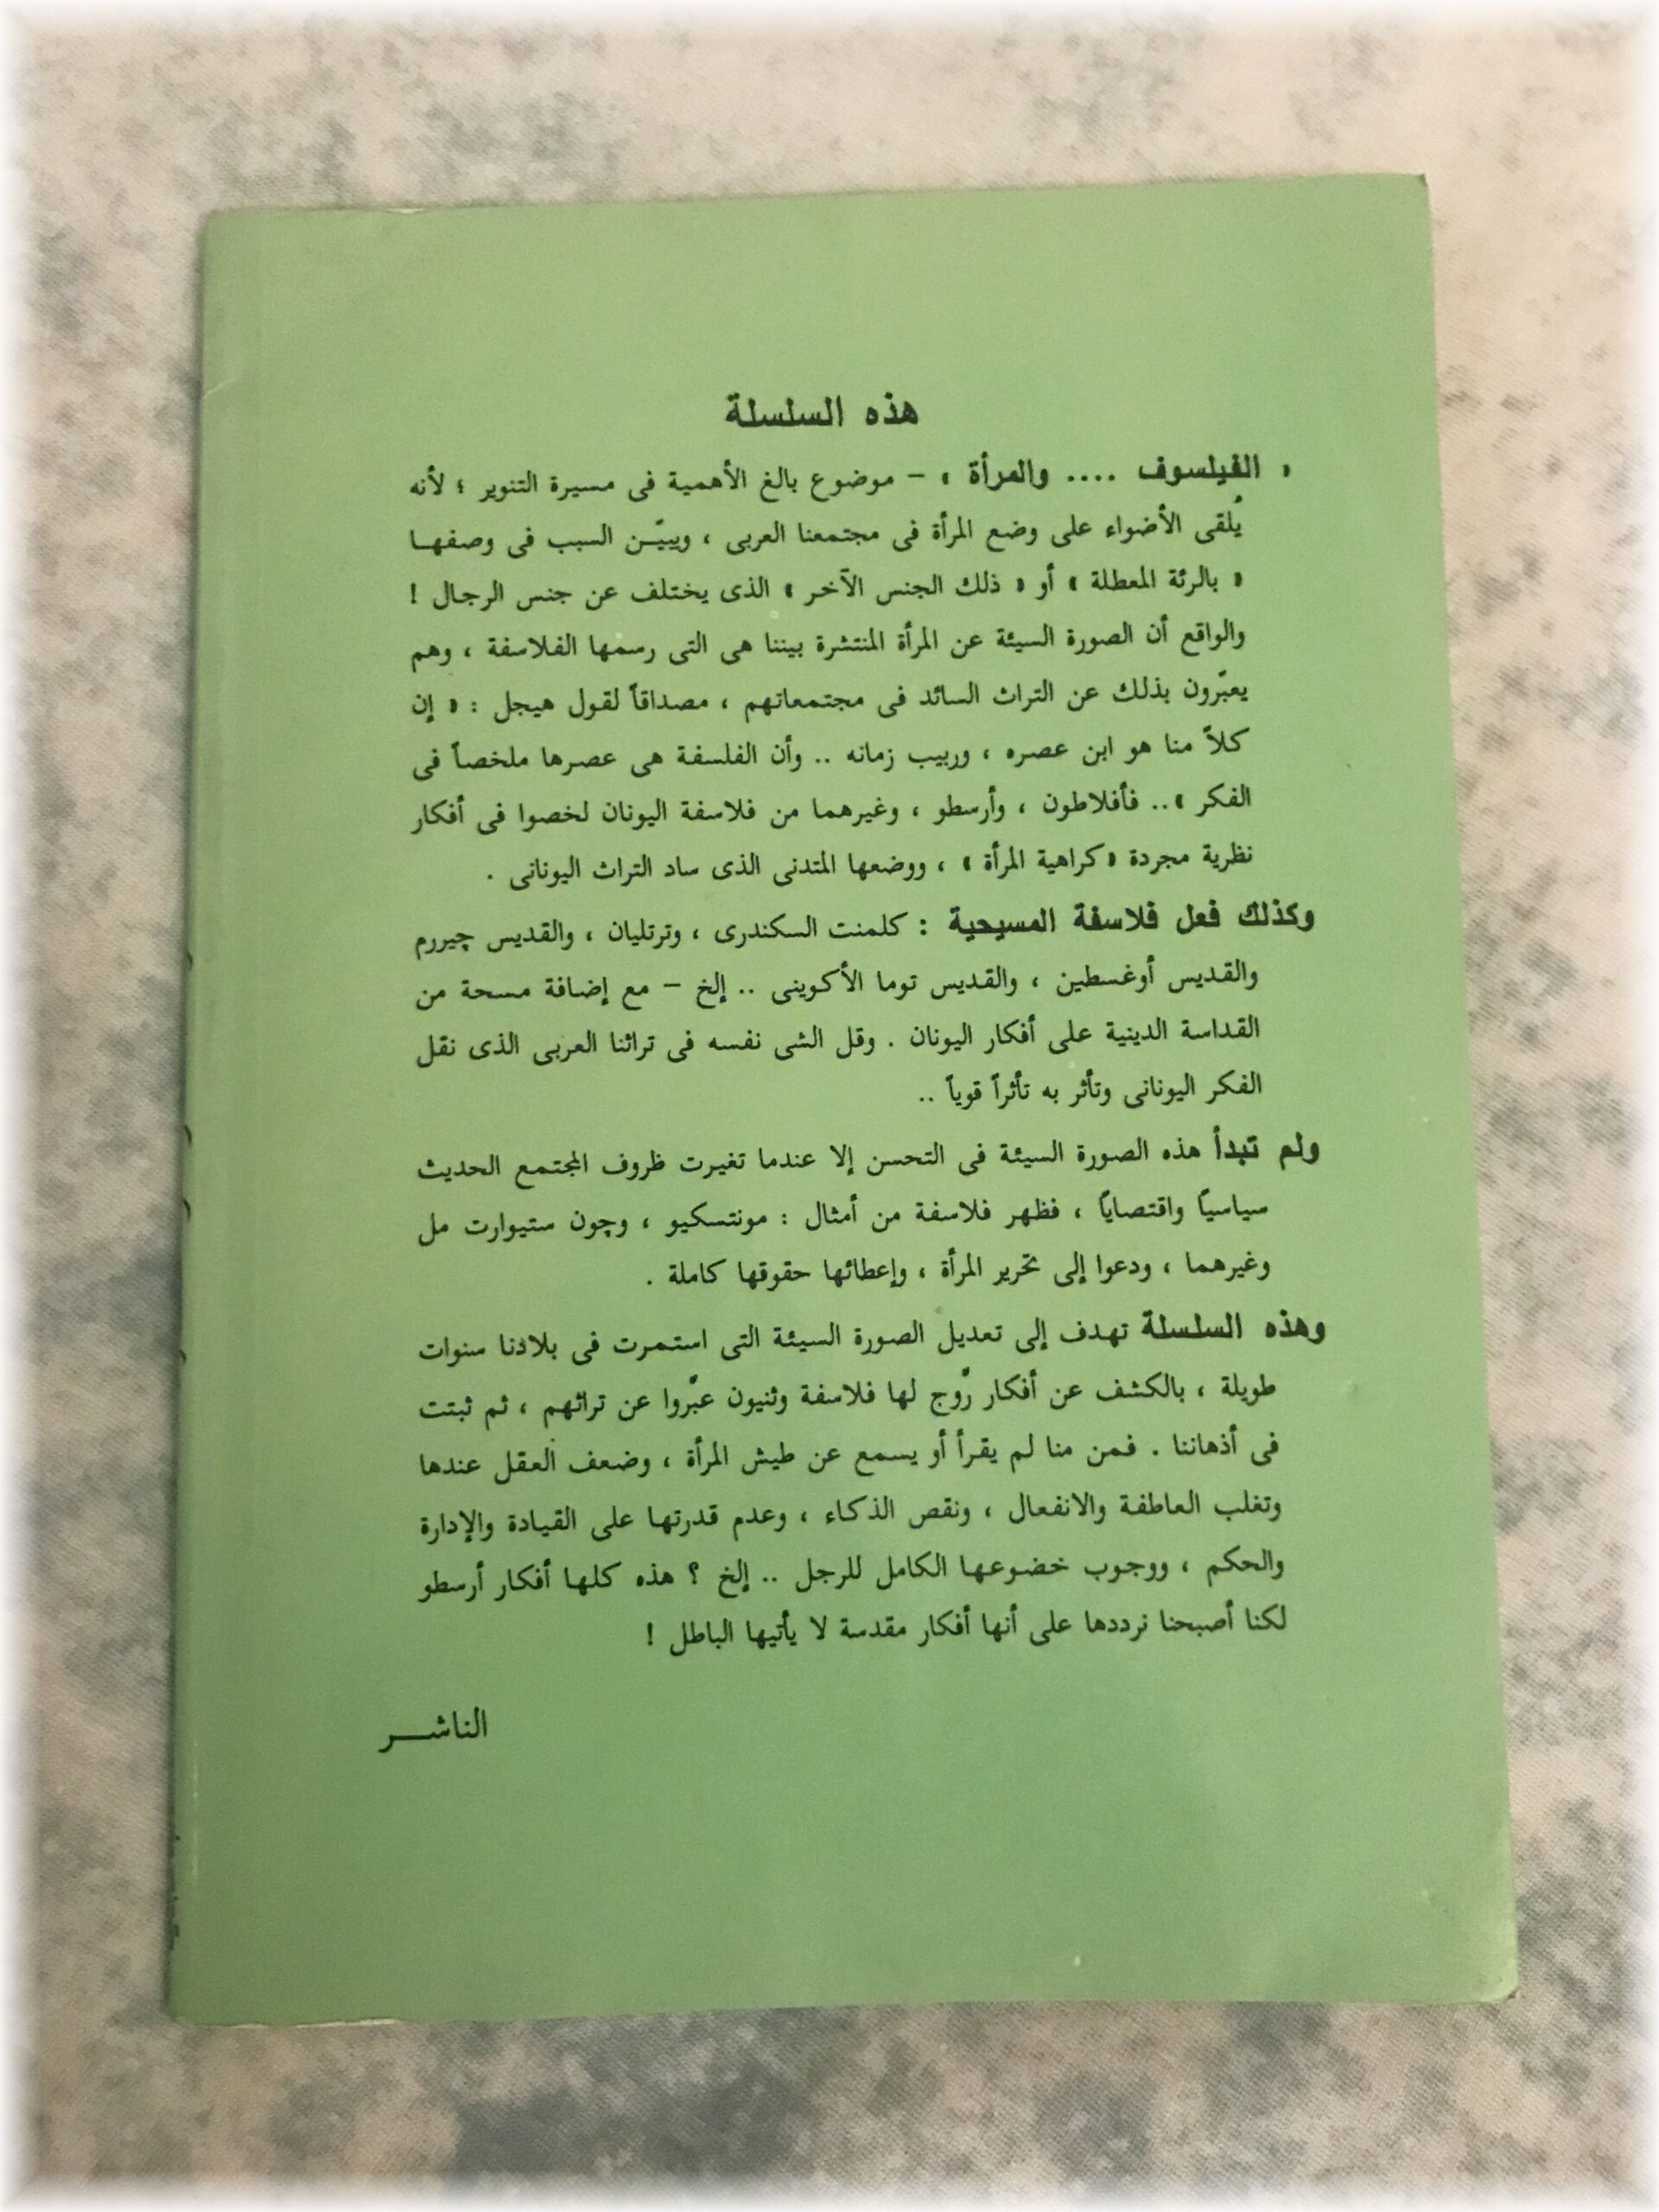 هذه السلسلة
« الفيلسوف .... والمرأة » – موضوع بالغ الأهمية فى مسيرة التنوير ؛ لأنه
يُلقى الأضواء على وضع المرأة فى مجتمعنا العربى ، ويبيّـن السبب فى وصفهـا
« بالرئة المعطلة » أو « ذلك الجنس الآخر » الذى يختلف عن جنس الرجال !
والواقع أن الصورة السيئة عن المرأة المنتشرة بيننا هى التى رسمها الفلاسفة ، وهم
يعبّرون بذلك عن التراث السائد فى مجتمعاتهم ، مصداقاً لقول هيجل : « إن
كلاً منا هو ابن عصره ، وربيب زمانه .. وأن الفلسفة هى عصرها ملخصاً فى
الفكر ».. فأفلاطون ، وأرسطو ، وغيرهما من فلاسفة اليونان لخصوا فى أفكار
نظرية مجردة « كراهية المرأة » ، ووضعها المتدنى الذى ساد التراث اليونانى .
وكذلك فعل فلاسفة المسيحية : كلمنت السكندرى ، وترتليان ، والقديس چيررم
والقديس أوغسطين ، والقديس توما الأكوينى .. إلخ – مع إضافة مسحة من
القداسة الدينية على أفكار اليونان . وقل الشى نفسه فى تراثنا العربى الذى نقل
الفكر اليونانى وتأثر به تأثراً قوياً ..
ولم تبدأ هذه الصورة السيئة فى التحسن إلا عندما تغيرت ظروف المجتمع الحديث
سياسيًا واقتصايًا ، فظهر فلاسفة من أمثال : مونتسكيو ، وچون ستيوارت مل
وغيرهما ، ودعوا إلى تحرير المرأة ، وإعطائها حقوقها كاملة .
وهذه السلسلة تهدف إلى تعديل الصورة السيئة التى استمرت فى بلادنا سنوات
طويلة ، بالكشف عن أفكار روّج لها فلاسفة وثنيون عبّروا عن تراثهم ، ثم ثبتت
فى أذهاننا . فمن منا لم يقرأ أو يسمع عن طيش المرأة ، وضعف العقل عندها
وتغلب العاطفة والانفعال ، ونقص الذكاء ، وعدم قدرتها على القيادة والإدارة
والحكم ، ووجوب خضوعها الكامل للرجل .. إلخ ؟ هذه كلها أفكار أرسطو
لكنا أصبحنا نرددها على أنها أفكار مقدسة لا يأتيها الباطل !
الناشـــر